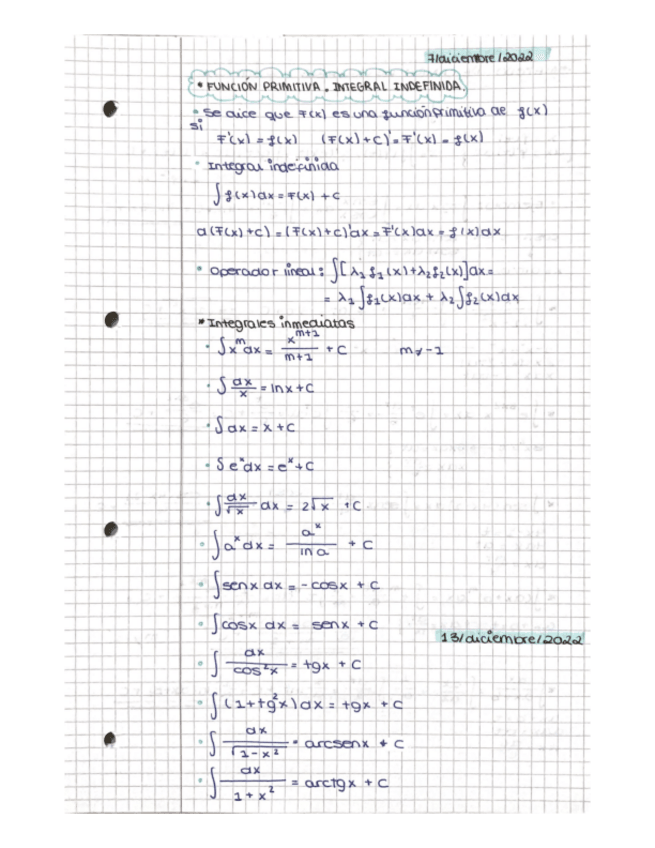 7/diciembre/2022
• FUNCIÓN PRIMITIVA. INTEGRAL INDEFINIDA.
• Se dice que F(x) es una función primitiva de f(x)
si
F'(x) = f(x) (F(x)+C)' = F'(x) = f(x)
• Integral indefinida
∫ f(x)dx = F(x) + C
d(F(x)+C) = (F(x)+C)'dx = F'(x)dx = f(x)dx
• Operador lineal: ∫[λ₁ f₁(x)+λ₂ f₂(x)]dx =
= λ₁ ∫f₁(x)dx + λ₂ ∫f₂(x)dx
* Integrales inmediatas
• ∫x^m dx = x^(m+1)/(m+1) + C m≠-1
• ∫ dx/x = ln x + C
• ∫dx = x + C
• ∫e^x dx = e^x + C
• ∫ dx/√x dx = 2√x + C
• ∫a^x dx = a^x/ln a + C
• ∫senx dx = -cosx + C
• ∫cosx dx = senx + C
13/diciembre/2022
• ∫ dx/cos²x = tgx + C
• ∫(1+tg²x)dx = tgx + C
• ∫ dx/√(1-x²) = arcsenx + C
• ∫ dx/(1+x²) = arctgx + C